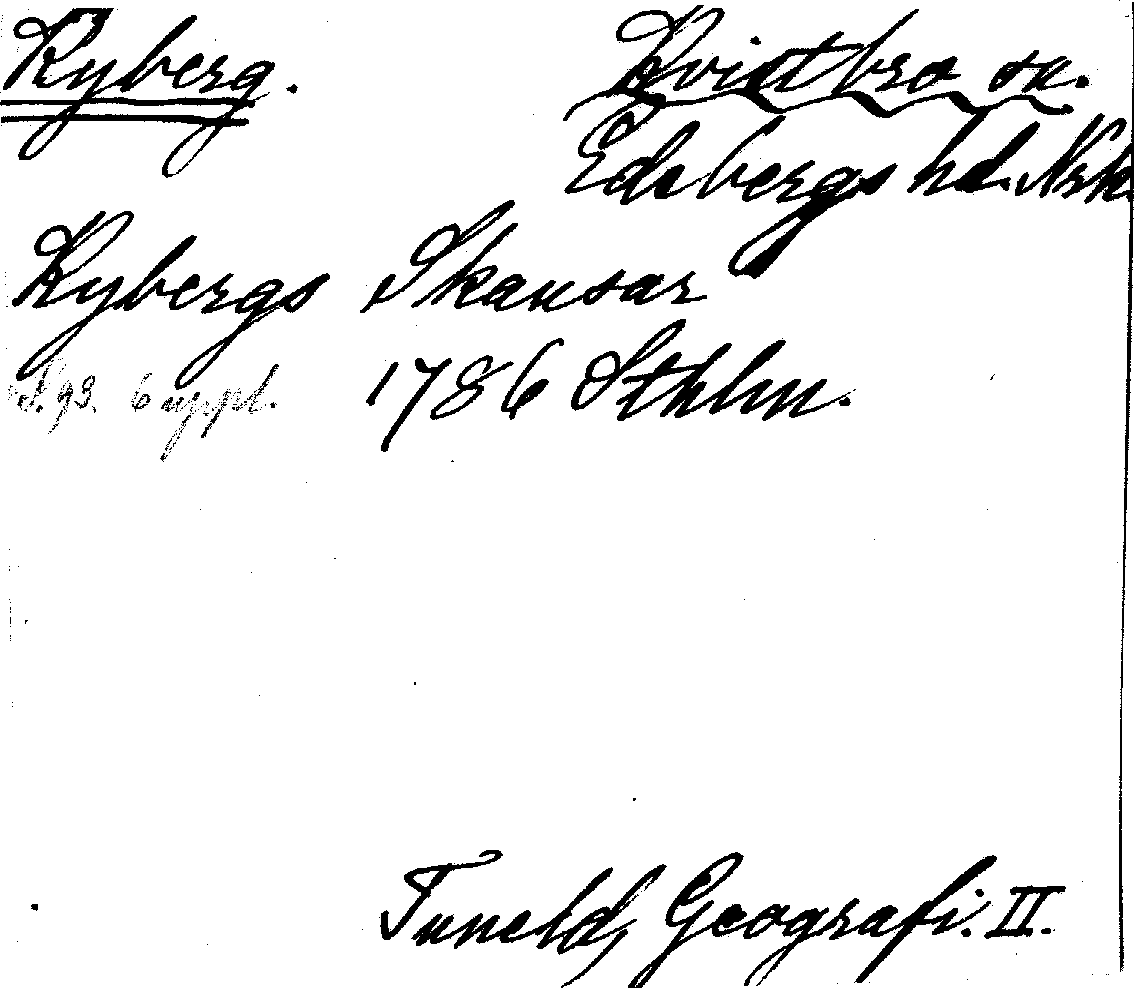 Ryberg.
Kvistbro sn.
Edsbergs hd. Nrk.
Rybergs Skansar
S. 93. 6 uppl. 1786 Sthlm.
Tuneld, Geografi. II.